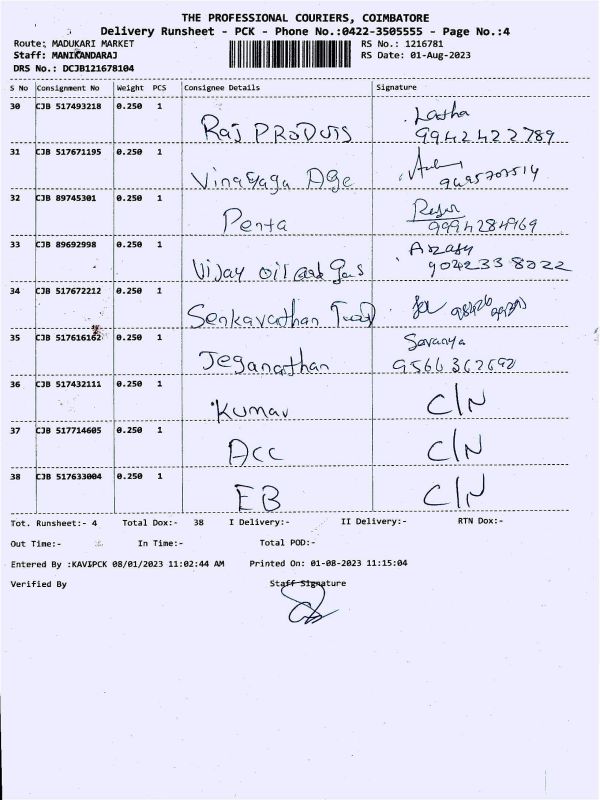 THE PROFESSIONAL COURIERS, COIMBATORE
Delivery Runsheet - PCK - Phone No.:0422-3505555 - Page No.:4
Route: MADUKARI MARKET RS No.: 1216781
Staff: MANIKANDARAJ RS Date: 01-Aug-2023
DRS No.: DCJB121678104
S No Consignment No Weight PCS Consignee Details Signature
30 CJB 517493218 0.250 1 Raj PRODUTS Latha
9942422789
31 CJB 517671195 0.250 1 Vinayaga Age
32 CJB 89745301 0.250 1 Penta
9994284969
33 CJB 89692998 0.250 1 Vijay oil and Gas
9042338022
34 CJB 517672212 0.250 1 Senkavathan
35 CJB 517616162 0.250 1 Jeganathan Saranya
9566362692
36 CJB 517432111 0.250 1 Kumar C/N
37 CJB 517714605 0.250 1 ACC C/N
38 CJB 517633004 0.250 1 EB C/N
Tot. Runsheet:- 4 Total Dox:- 38 I Delivery:- II Delivery:- RTN Dox:-
Out Time:- In Time:- Total POD:-
Entered By :KAVIPCK 08/01/2023 11:02:44 AM Printed On: 01-08-2023 11:15:04
Verified By Staff Signature